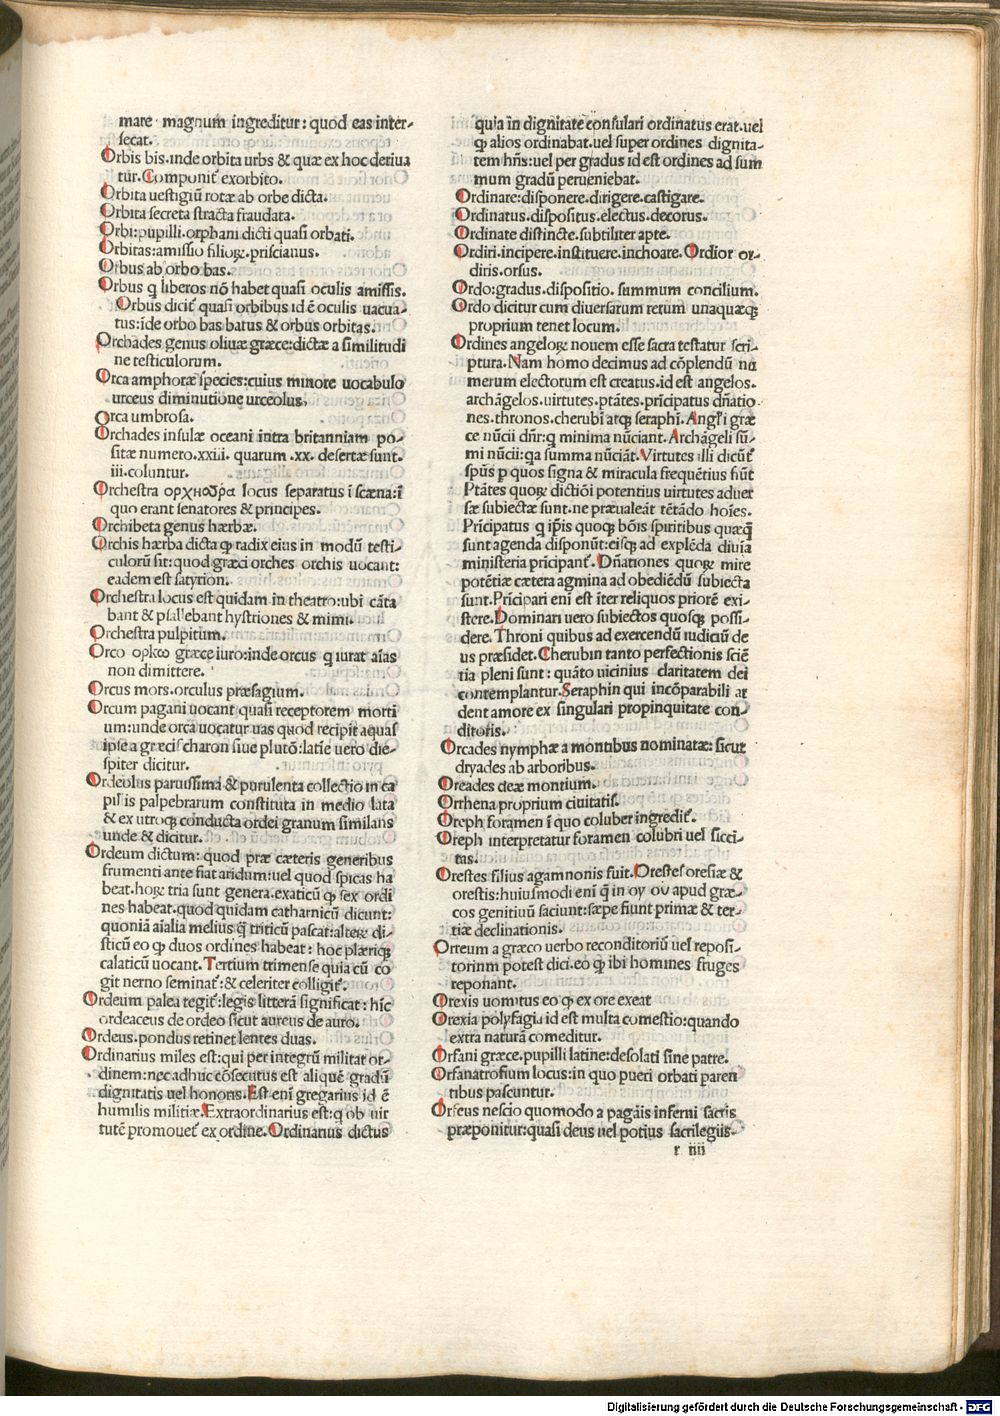 mare magnum ingreditur: quod eas inter-
secat.
Orbis bis.inde orbita urbs & quæ ex hoc deriua
tur. Componit̃ exorbito.
Orbita uestigiũ rotæ ab orbe dicta.
Orbita secreta stracta fraudata.
Orbi:pupilli.orphani dicti quasi orbati.
Orbitas:amissio filioꝝ.priscianus.
Orbus ab orbo bas.
Orbus q liberos nõ habet quasi oculis amissis.
Orbus dicit̃ quasi orbibus id ẽ oculis uacua-
tus:ĩde orbo bas batus & orbus orbitas.
Orchades genus oliuæ græce:dictæ a similitudi
ne testiculorum.
Orca amphoræ species:cuius minore uocabulo
urceus diminutione urceolus.
Orca umbrosa.
Orchades insulæ oceani intra britanniam po-
sitæ numero.xxiii. quarum .xx. desertæ sunt.
iii.coluntur.
Orchestra ορχηϲδρα locus separatus ĩ scæna:ĩ
quo erant senatores & principes.
Orchibeta genus hærbæ.
Orchis hærba dicta ꝙ radix eius in modũ testi-
culorũ sit:quod græci orches orchis uocant:
eadem est satyrion.
Orchestra locus est quidam in theatro:ubi cãta
bant & psallebant hystriones & mimi.
Orchestra pulpitum.
Orco ορκω græce iuro:inde orcus q iurat aĩas
non dimittere.
Orcus mors.orculus præsagium.
Orcum pagani uocant quasi receptorem morti
um:unde orca uocatur uas quod recipit aquas
ipse a græcis charon siue plutõ:latĩe uero die-
spiter dicitur.
Ordeolus paruissima & purulenta collectio in ca
pillis palpebrarum constituta in medio lata
& ex utroqꝫ conducta ordei granum similans
unde & dicitur.
Ordeum dictum:quod præ cæteris generibus
frumenti ante fiat aridum:uel quod spicas ha
beat.hoꝝ tria sunt genera.exaticũ ꝙ sex ordi
nes habeat.quod quidam catharnicũ dicunt:
quoniã aĩalia melius q̃ triticũ pascat:alteꝝ di-
sticũ eo ꝙ duos ordines habeat: hoc plæriqꝫ
calaticũ uocant. Tertium trimense quia cũ co
git nerno seminat̃:& celeriter colligit̃.
Ordeum palea tegit̃:legis litterã significat: hĩc
ordeaceus de ordeo sicut aureus de auro.
Ordeus.pondus retinet lentes duas.
Ordinarius miles est:qui per integrũ militat or-
dinem:nec adhuc cõsecutus est aliquẽ gradũ
dignitatis uel honoris. Est enĩ gregarius id ẽ
humilis militiæ. Extraordinarius est:q ob uir
tutẽ promouet̃ ex ordine. Ordinarius dictus
quia in dignitate consulari ordinatus erat.uel
ꝙ alios ordinabat.uel super ordines dignita-
tem hñs:uel per gradus id est ordines ad sum
mum gradũ perueniebat.
Ordinare:disponere.dirigere.castigare.
Ordinatus.dispositus.electus.decorus.
Ordinate distincte.subtiliter apte.
Ordiri.incipere.instituere.inchoare. Ordior or-
diris.orsus.
Ordo:gradus.dispositio. summum concilium.
Ordo dicitur cum diuersarum rerum unaquæqꝫ
proprium tenet locum.
Ordines angeloꝝ nouem esse sacra testatur scri-
ptura. Nam homo decimus ad cõplendũ nu
merum electorum est creatus.id est angelos.
archãgelos.uirtutes.ptãtes.prĩcipatus dñatio
nes.thronos.cherubĩ atqꝫ seraphĩ. Angl'i græ
ce nũcii dñr:q minima nũciant. Archãgeli sũ-
mi nũcii:qa summa nũciãt. Virtutes illi dicũt̃
spũs p quos signa & miracula frequẽtius fiũt
Ptãtes quoꝝ dictiõi potentius uirtutes aduer
sæ subiectæ sunt.ne præualeãt tẽtãdo hoĩes.
Prĩcipatus q ip̃is quoqꝫ bõis spiritibus quæq̃
sunt agenda disponũt:eisqꝫ ad explẽda diuia
ministeria pricipant̃. Dñationes quoꝝ mire
potẽtiæ cætera agmina ad obediẽdũ subiecta
sunt. Prĩcipari enĩ est ĩter reliquos priorẽ exi-
stere. Dominari uero subiectos quosqꝫ possi-
dere. Throni quibus ad exercendũ iudiciũ de
us præsidet. Cherubin tanto perfectionis sciẽ
tia pleni sunt: quãto uicinius claritatem dei
contemplantur. Seraphin qui incõparabili ar
dent amore ex singulari propinquitate con-
ditoris.
Orcades nymphæ a montibus nominatæ: sicut
dryades ab arboribus.
Oreades deæ montium.
Orrhena proprium ciuitatis.
Oreph foramen ĩ quo coluber ingredit̃.
Oreph interpretatur foramen colubri uel sicci-
tas.
Orestes filius agamnonis fuit. Orestes oresiæ &
orestis:huiusmodi enĩ q̃ in oy ου apud græ-
cos genitiuũ faciunt:sæpe fiunt primæ & ter-
tiæ declinationis.
Orreum a græco uerbo reconditoriũ uel reposi-
torinm potest dici.eo ꝙ ibi homines fruges
reponant.
Orexis uomitus eo ꝙ ex ore exeat
Orexia polyfagia id est multa comestio:quando
extra naturã comeditur.
Orfani græce.pupilli latine:desolati sine patre.
Orfanatrofium locus:in quo pueri orbati paren
tibus pascuntur.
Orfeus nescio quomodo a pagãis inferni sacris
præponitur:quasi deus uel potius sacrilegiis
r iiii
Digitalisierung gefördert durch die Deutsche Forschungsgemeinschaft - DFG